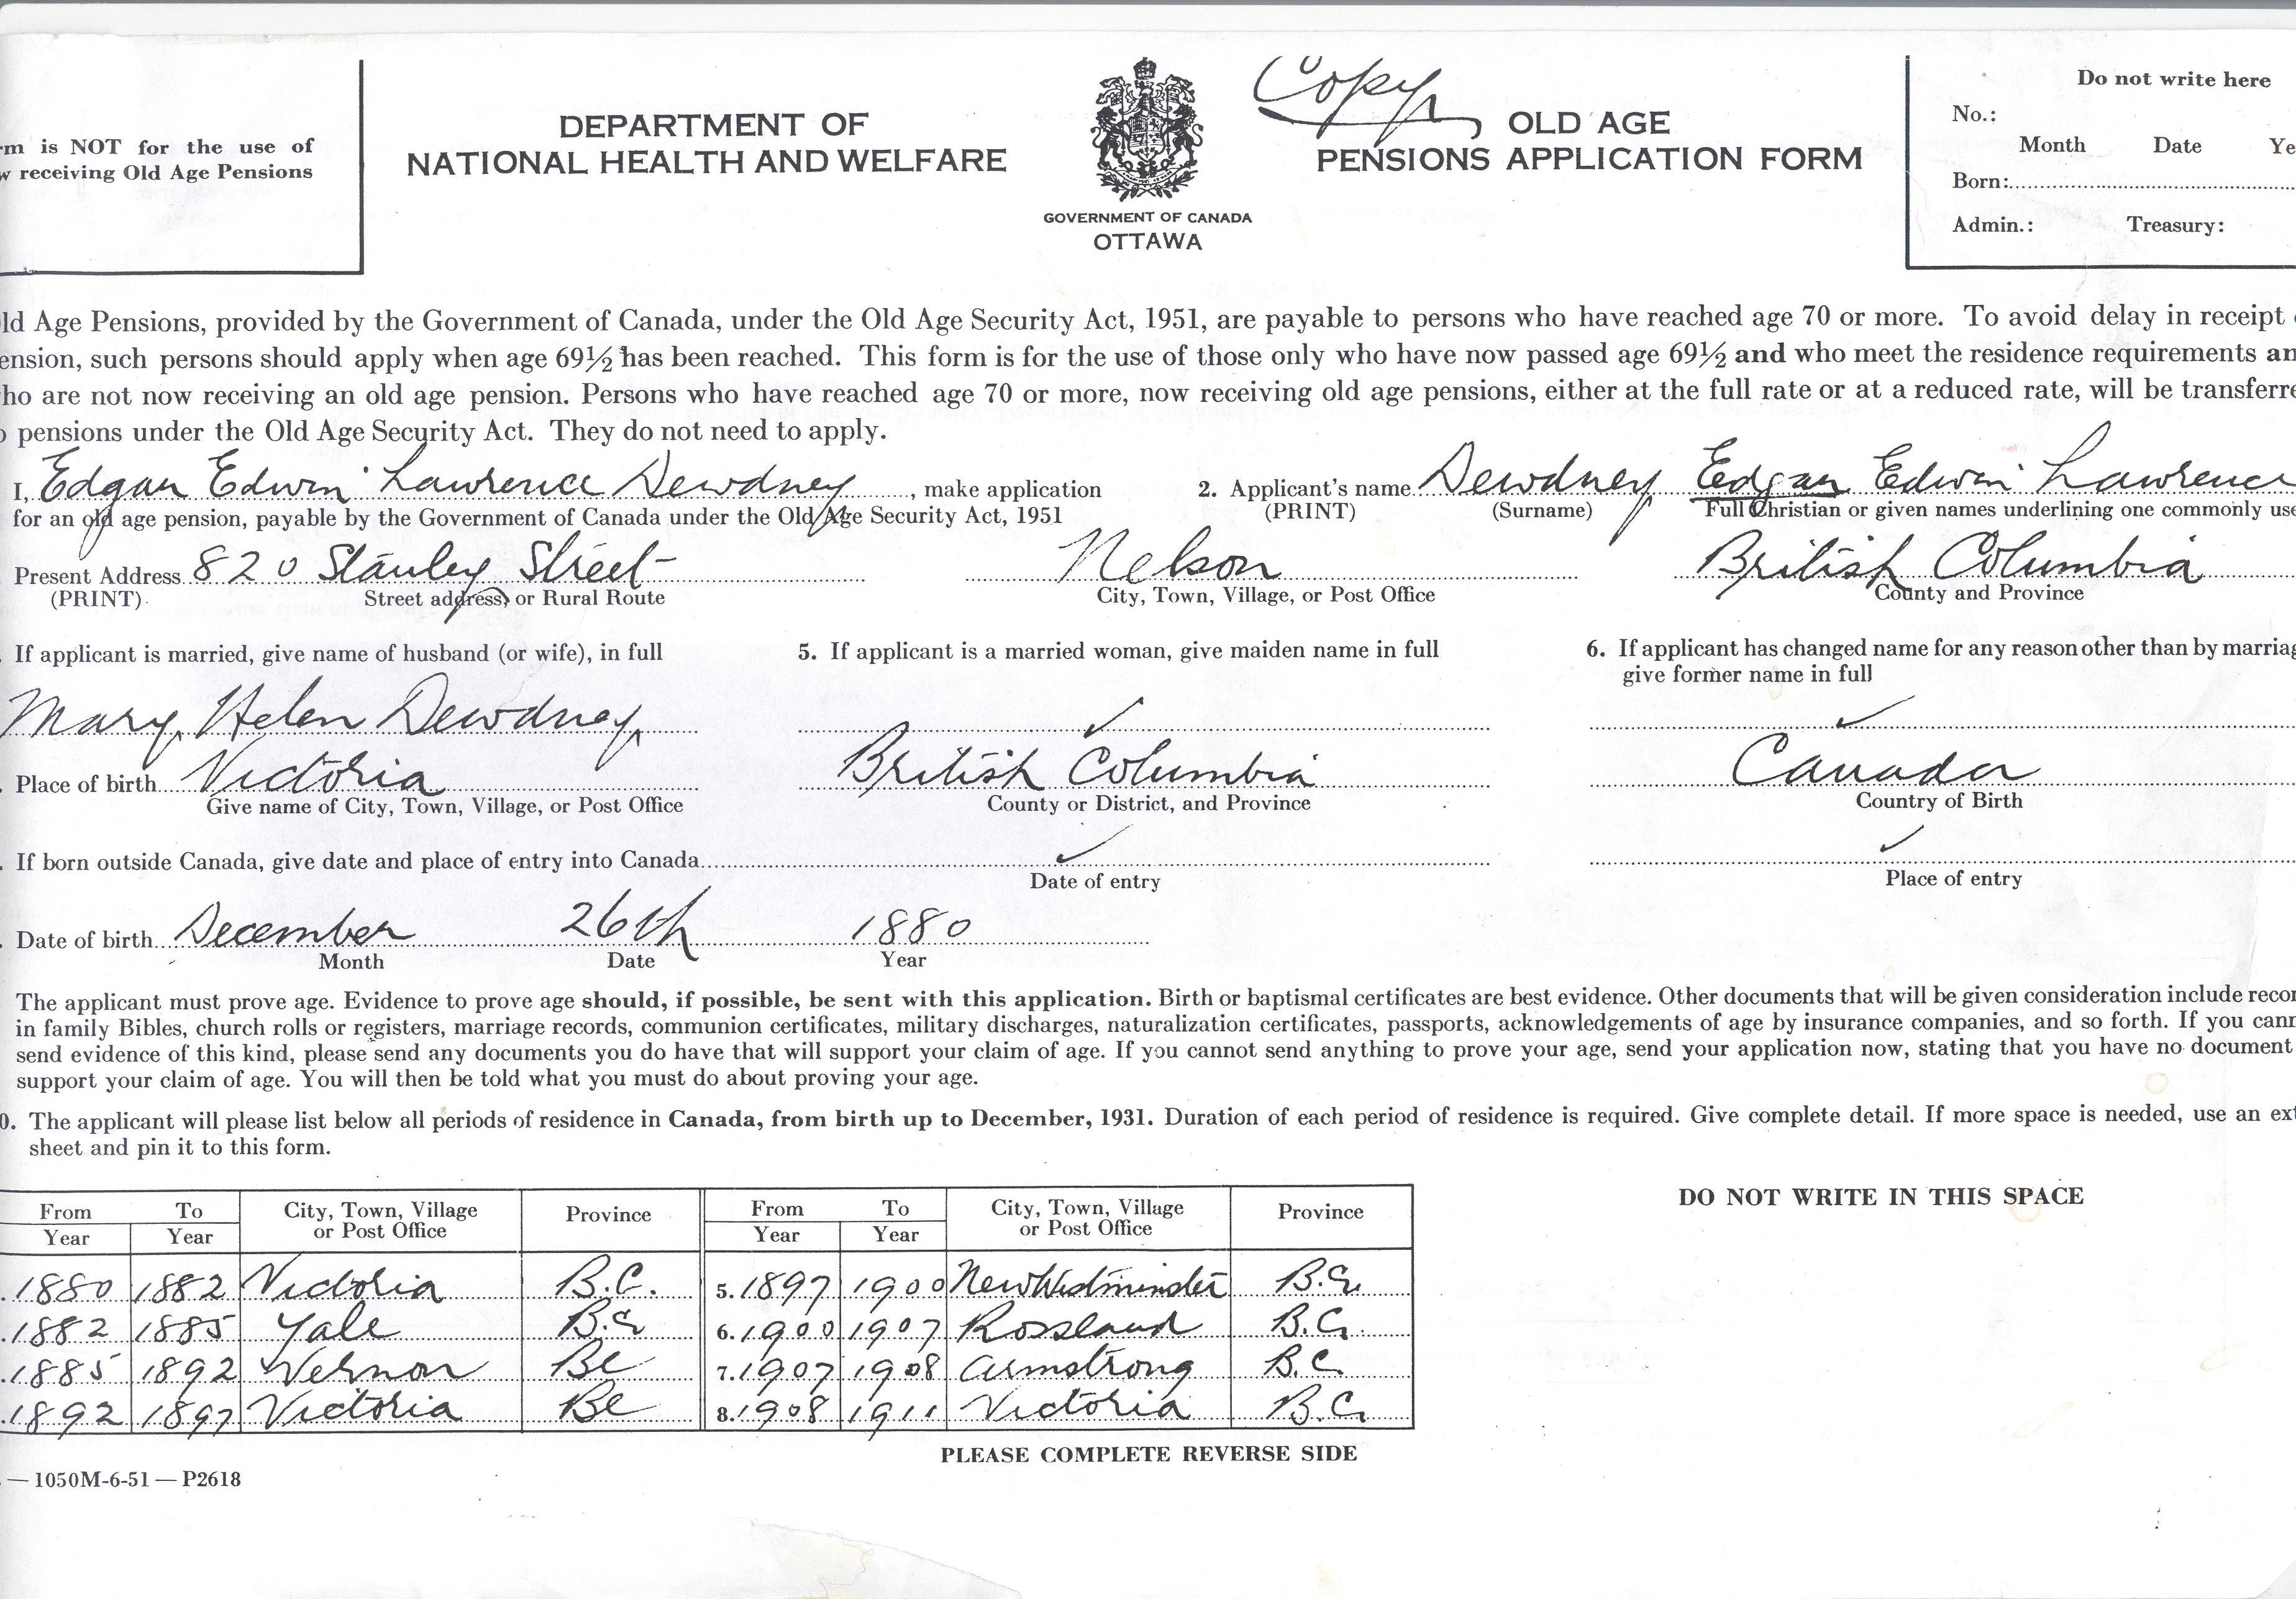 Copy
Do not write here
No.:
Month Date Ye
Born:
Admin.: Treasury:
rm is NOT for the use of
w receiving Old Age Pensions
DEPARTMENT OF
NATIONAL HEALTH AND WELFARE
GOVERNMENT OF CANADA
OTTAWA
OLD AGE
PENSIONS APPLICATION FORM
ld Age Pensions, provided by the Government of Canada, under the Old Age Security Act, 1951, are payable to persons who have reached age 70 or more. To avoid delay in receipt
ension, such persons should apply when age 69½ has been reached. This form is for the use of those only who have now passed age 69½ and who meet the residence requirements an
ho are not now receiving an old age pension. Persons who have reached age 70 or more, now receiving old age pensions, either at the full rate or at a reduced rate, will be transferre
o pensions under the Old Age Security Act. They do not need to apply.
I, Edgar Edwin Lawrence Dewdney, make application 2. Applicant's name Dewdney Edgar Edwin Lawrence
for an old age pension, payable by the Government of Canada under the Old Age Security Act, 1951 (PRINT) (Surname) Full Christian or given names underlining one commonly use
Present Address 820 Stanley Street Nelson British Columbia
(PRINT) Street address, or Rural Route City, Town, Village, or Post Office County and Province
. If applicant is married, give name of husband (or wife), in full 5. If applicant is a married woman, give maiden name in full 6. If applicant has changed name for any reason other than by marriag
give former name in full
Mary Helen Dewdney ✓ ✓
. Place of birth Victoria British Columbia Canada
Give name of City, Town, Village, or Post Office County or District, and Province Country of Birth
. If born outside Canada, give date and place of entry into Canada ✓ ✓
Date of entry Place of entry
. Date of birth December 26th 1880
Month Date Year
The applicant must prove age. Evidence to prove age should, if possible, be sent with this application. Birth or baptismal certificates are best evidence. Other documents that will be given consideration include recor
in family Bibles, church rolls or registers, marriage records, communion certificates, military discharges, naturalization certificates, passports, acknowledgements of age by insurance companies, and so forth. If you cann
send evidence of this kind, please send any documents you do have that will support your claim of age. If you cannot send anything to prove your age, send your application now, stating that you have no document
support your claim of age. You will then be told what you must do about proving your age.
0. The applicant will please list below all periods of residence in Canada, from birth up to December, 1931. Duration of each period of residence is required. Give complete detail. If more space is needed, use an ext
sheet and pin it to this form.
From To City, Town, Village Province From To City, Town, Village Province
Year Year or Post Office Year Year or Post Office
DO NOT WRITE IN THIS SPACE
. 1880 1882 Victoria B.C. 5. 1897 1900 New Westminster B.C.
. 1882 1885 Yale B.C. 6. 1900 1907 Rossland B.C.
. 1885 1892 Vernon BC 7. 1907 1908 Armstrong B.C.
. 1892 1897 Victoria BC 8. 1908 1911 Victoria B.C.
PLEASE COMPLETE REVERSE SIDE
— 1050M-6-51 — P2618